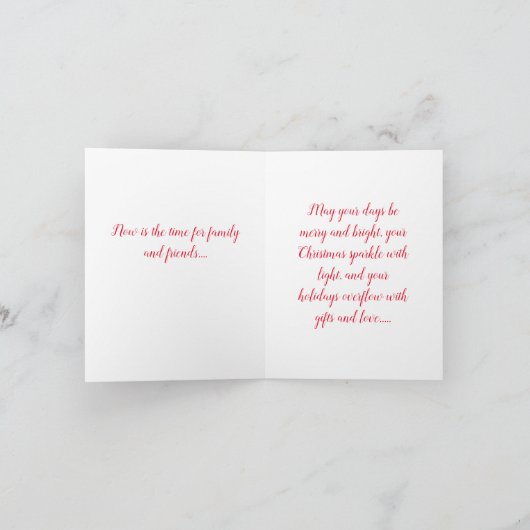 Now is the time for family
and friends....
May your days be
merry and bright, your
Christmas sparkle with
light, and your
holidays overflow with
gifts and love.....